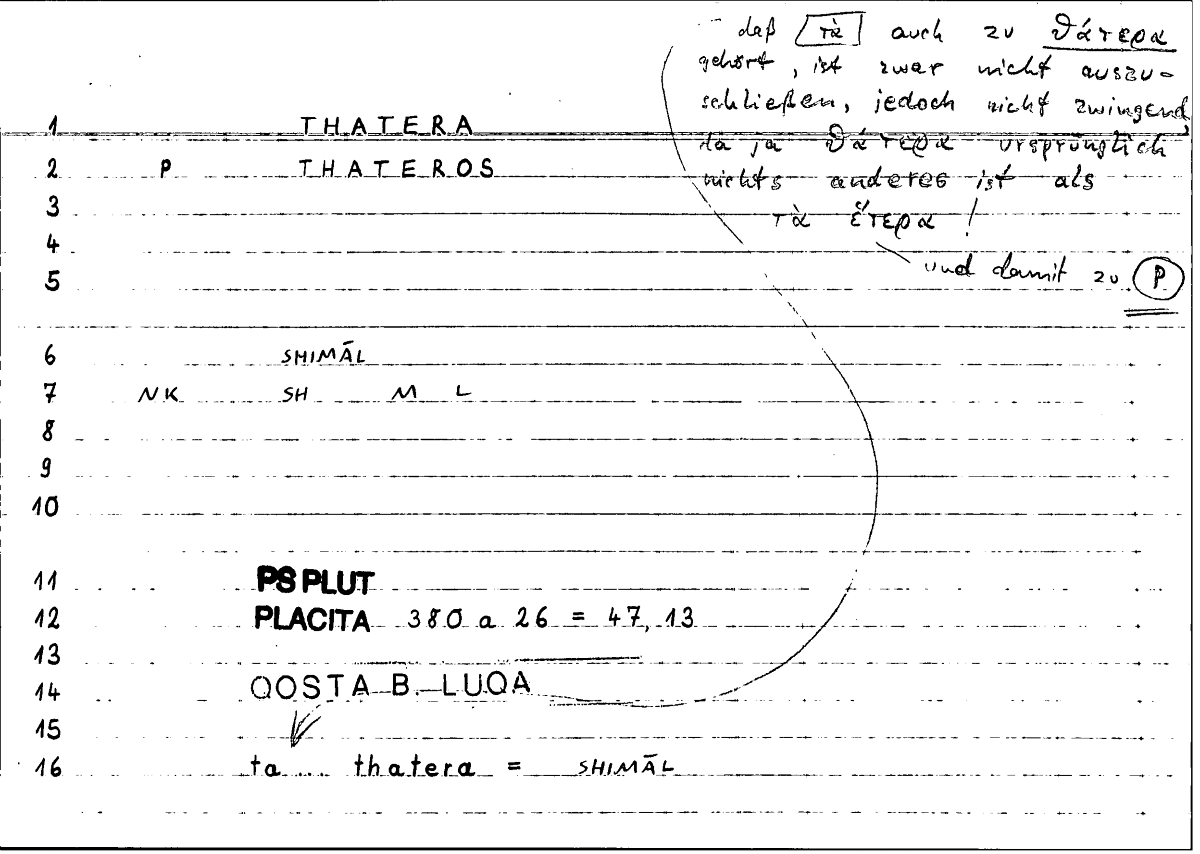 daß τὰ auch zu θάτερα
gehört, ist zwar nicht auszu-
schließen, jedoch nicht zwingend,
da ja θάτερα ursprünglich
nichts anderes ist als
τὰ ἕτερα!
und damit zu P
1 THATERA
2 P THATEROS
3
4
5
6 SHIMĀL
7 NK SH M L
8
9
10
11 PS PLUT
12 PLACITA 380 a 26 = 47,13
13
14 QOSTA B. LUQA
15
16 ta ... thatera = SHIMĀL